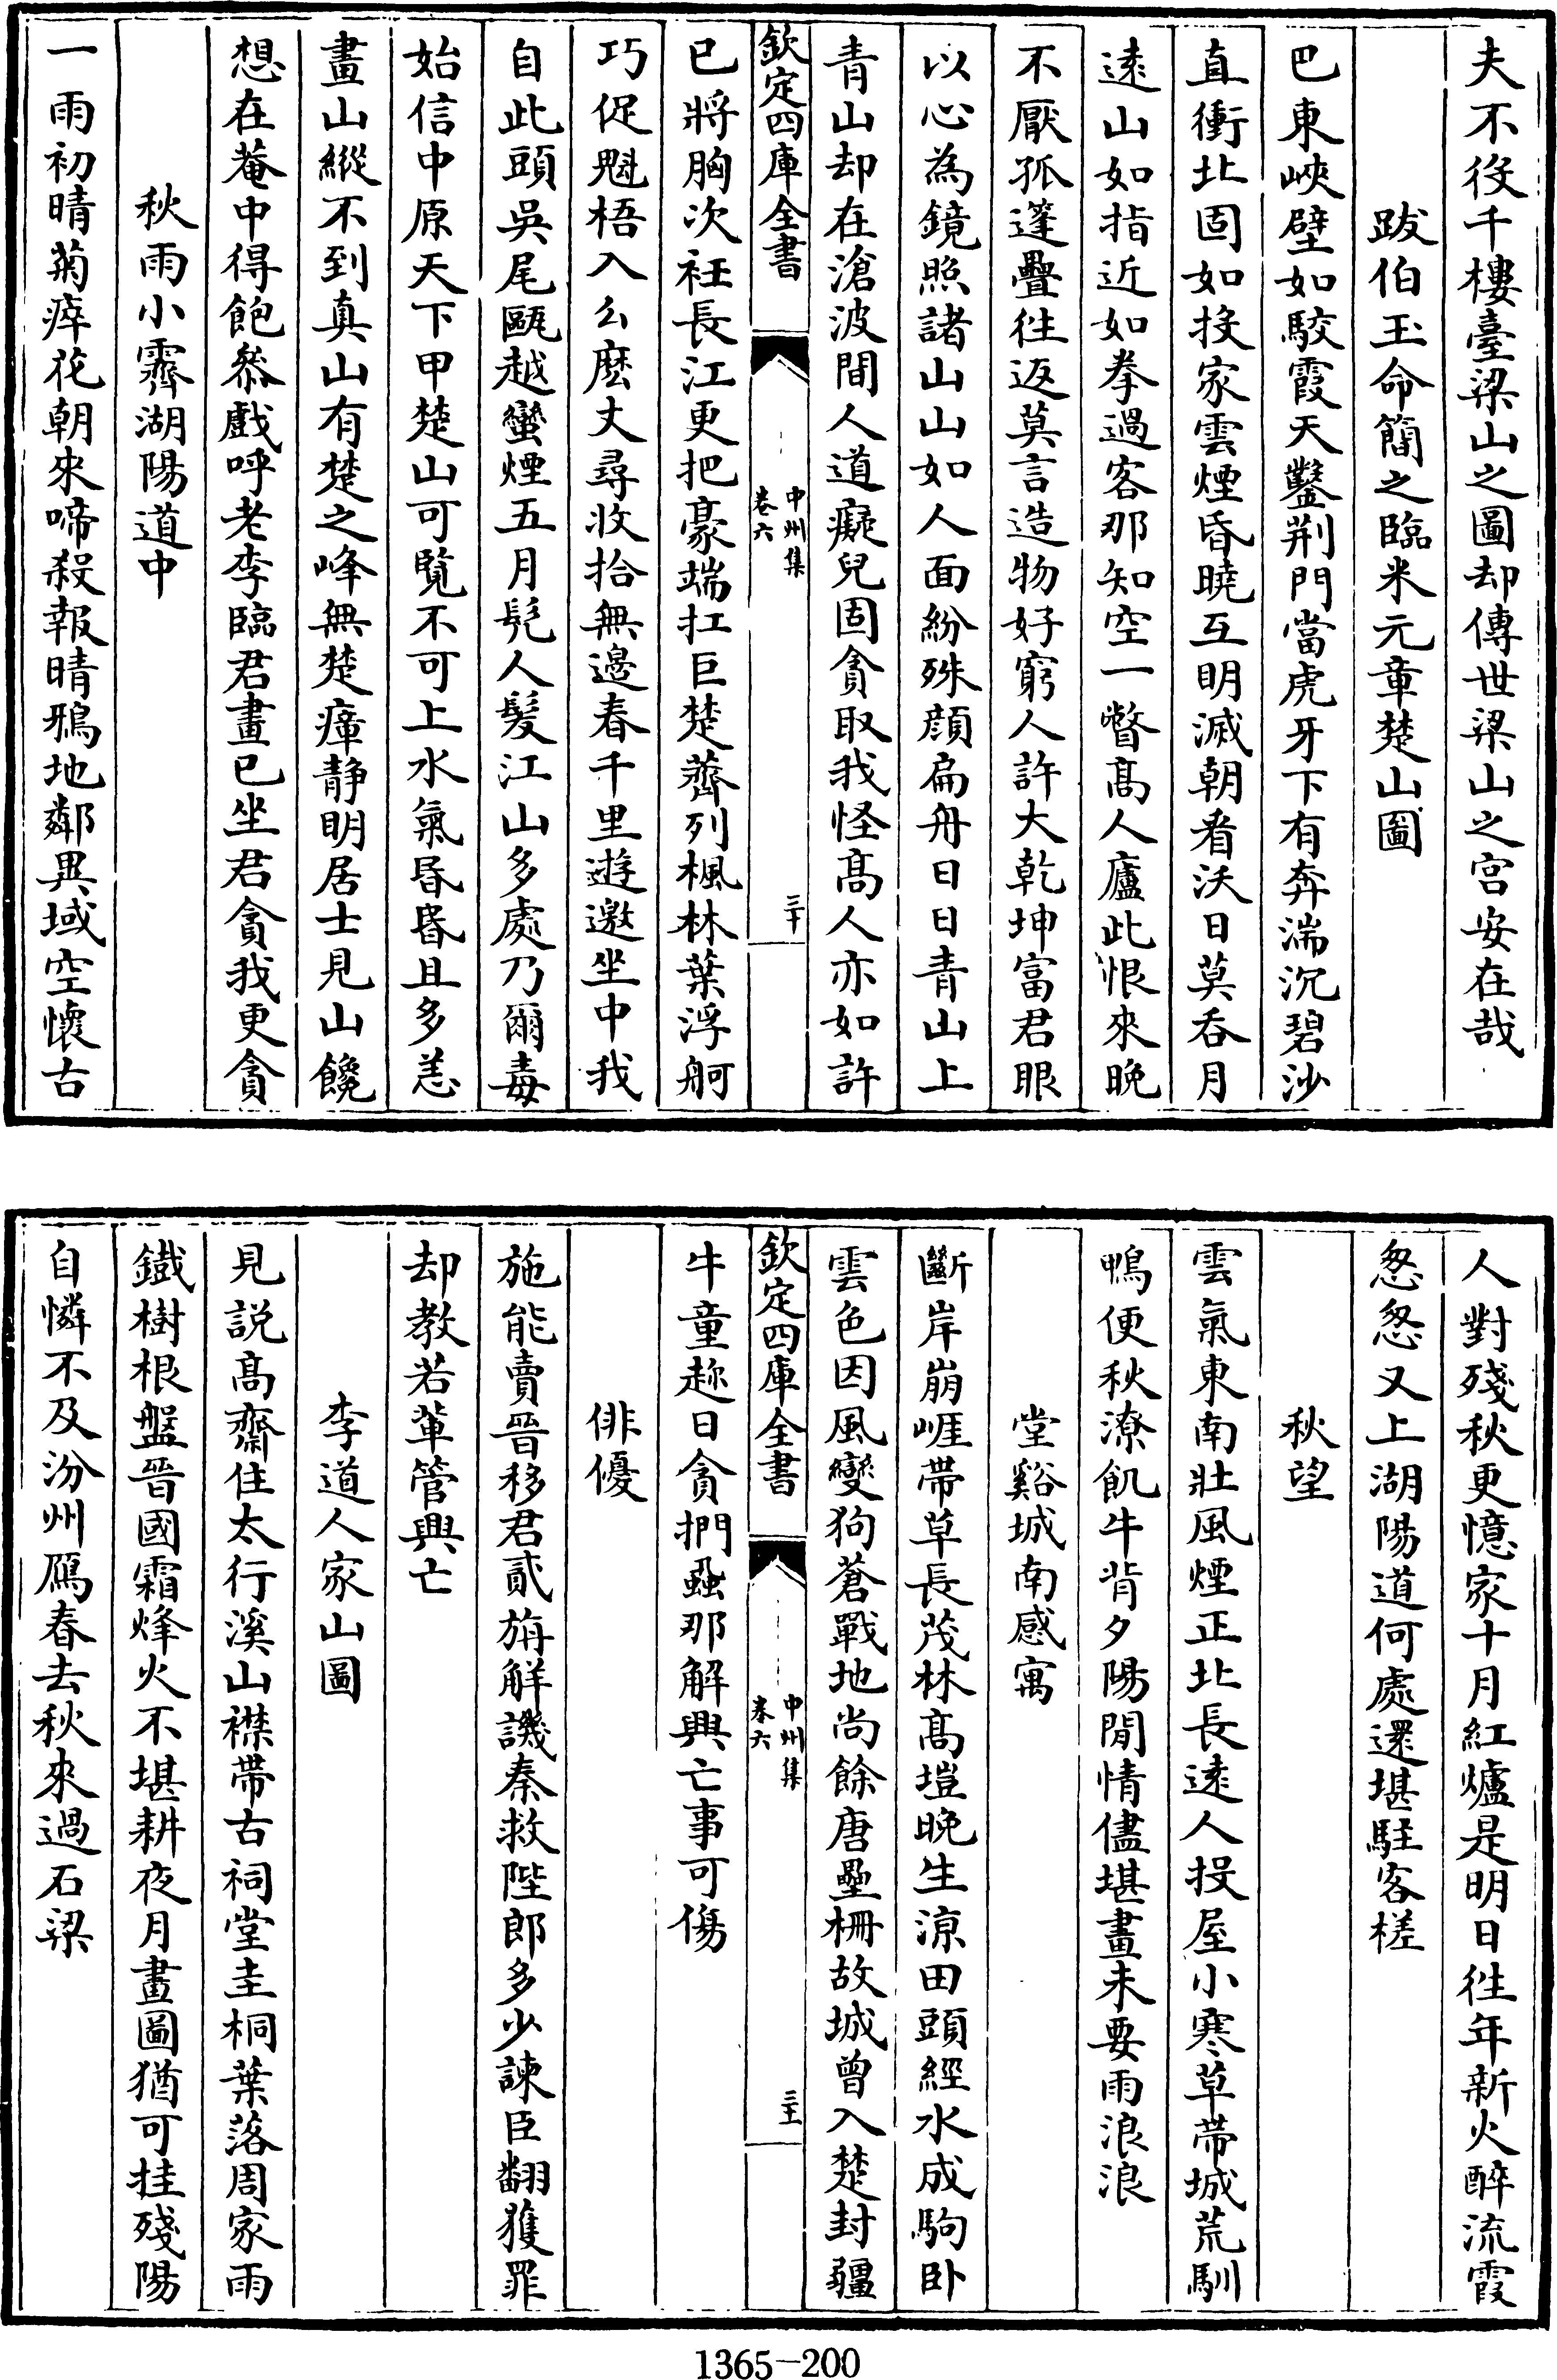 夫不役千樓臺梁山之圖却傳世梁山之宫安在哉
跋伯玉命簡之臨米元章楚山圖
巴東峽壁如駮霞天鑿荆門當虎牙下有奔湍沉碧沙
直衝北固如投家雲煙昏曉互明滅朝看沃日莫吞月
逺山如指近如拳過客那知空一瞥髙人廬此恨來晚
不厭孤篷疊徃返莫言造物好窮人許大乾坤富君眼
以心為鏡照諸山山如人面紛殊顔扁舟日日青山上
青山却在滄波間人道癡兒固貪取我怪髙人亦如許
欽定四庫全書
中州集
卷六
三十
已將胸次衽長江更把豪端扛巨楚薺列楓林葉浮舸
巧促魁梧入么麽丈尋收拾無邊春千里遊邀坐中我
自此頭吳尾甌越蠻煙五月髠人髮江山多處乃爾毒
始信中原天下甲楚山可覽不可上水氣昏昏且多恙
畫山縱不到真山有楚之峰無楚瘴静明居士見山饞
想在菴中得飽叅戲呼老李臨君畫已坐君貪我更貪
秋雨小霽湖陽道中
一雨初晴菊瘁花朝來啼殺報晴鴉地鄰異域空懷古
人對殘秋更憶家十月紅爐是明日徃年新火醉流霞
怱怱又上湖陽道何處還堪駐客槎
秋望
雲氣東南壯風煙正北長逺人投屋小寒草帶城荒馴
鴨便秋潦飢牛背夕陽閒情儘堪畫未要雨浪浪
堂谿城南感寓
斷岸崩崕帶草長茂林髙塏晚生涼田頭經水成駒卧
雲色因風變狗蒼戰地尚餘唐壘栅故城曾入楚封疆
欽定四庫全書
中州集
卷六
三十一
牛童趂日貪捫蝨那解興亡事可傷
俳優
施能賣晉移君貳旃解譏秦救陛郎多少諫臣翻獲罪
却教若軰管興亡
李道人家山圖
見説髙齋住太行溪山襟帶古祠堂圭桐葉落周家雨
鐵樹根盤晉國霜烽火不堪耕夜月畫圖猶可挂殘陽
自憐不及汾州鴈春去秋來過石梁
1365—200